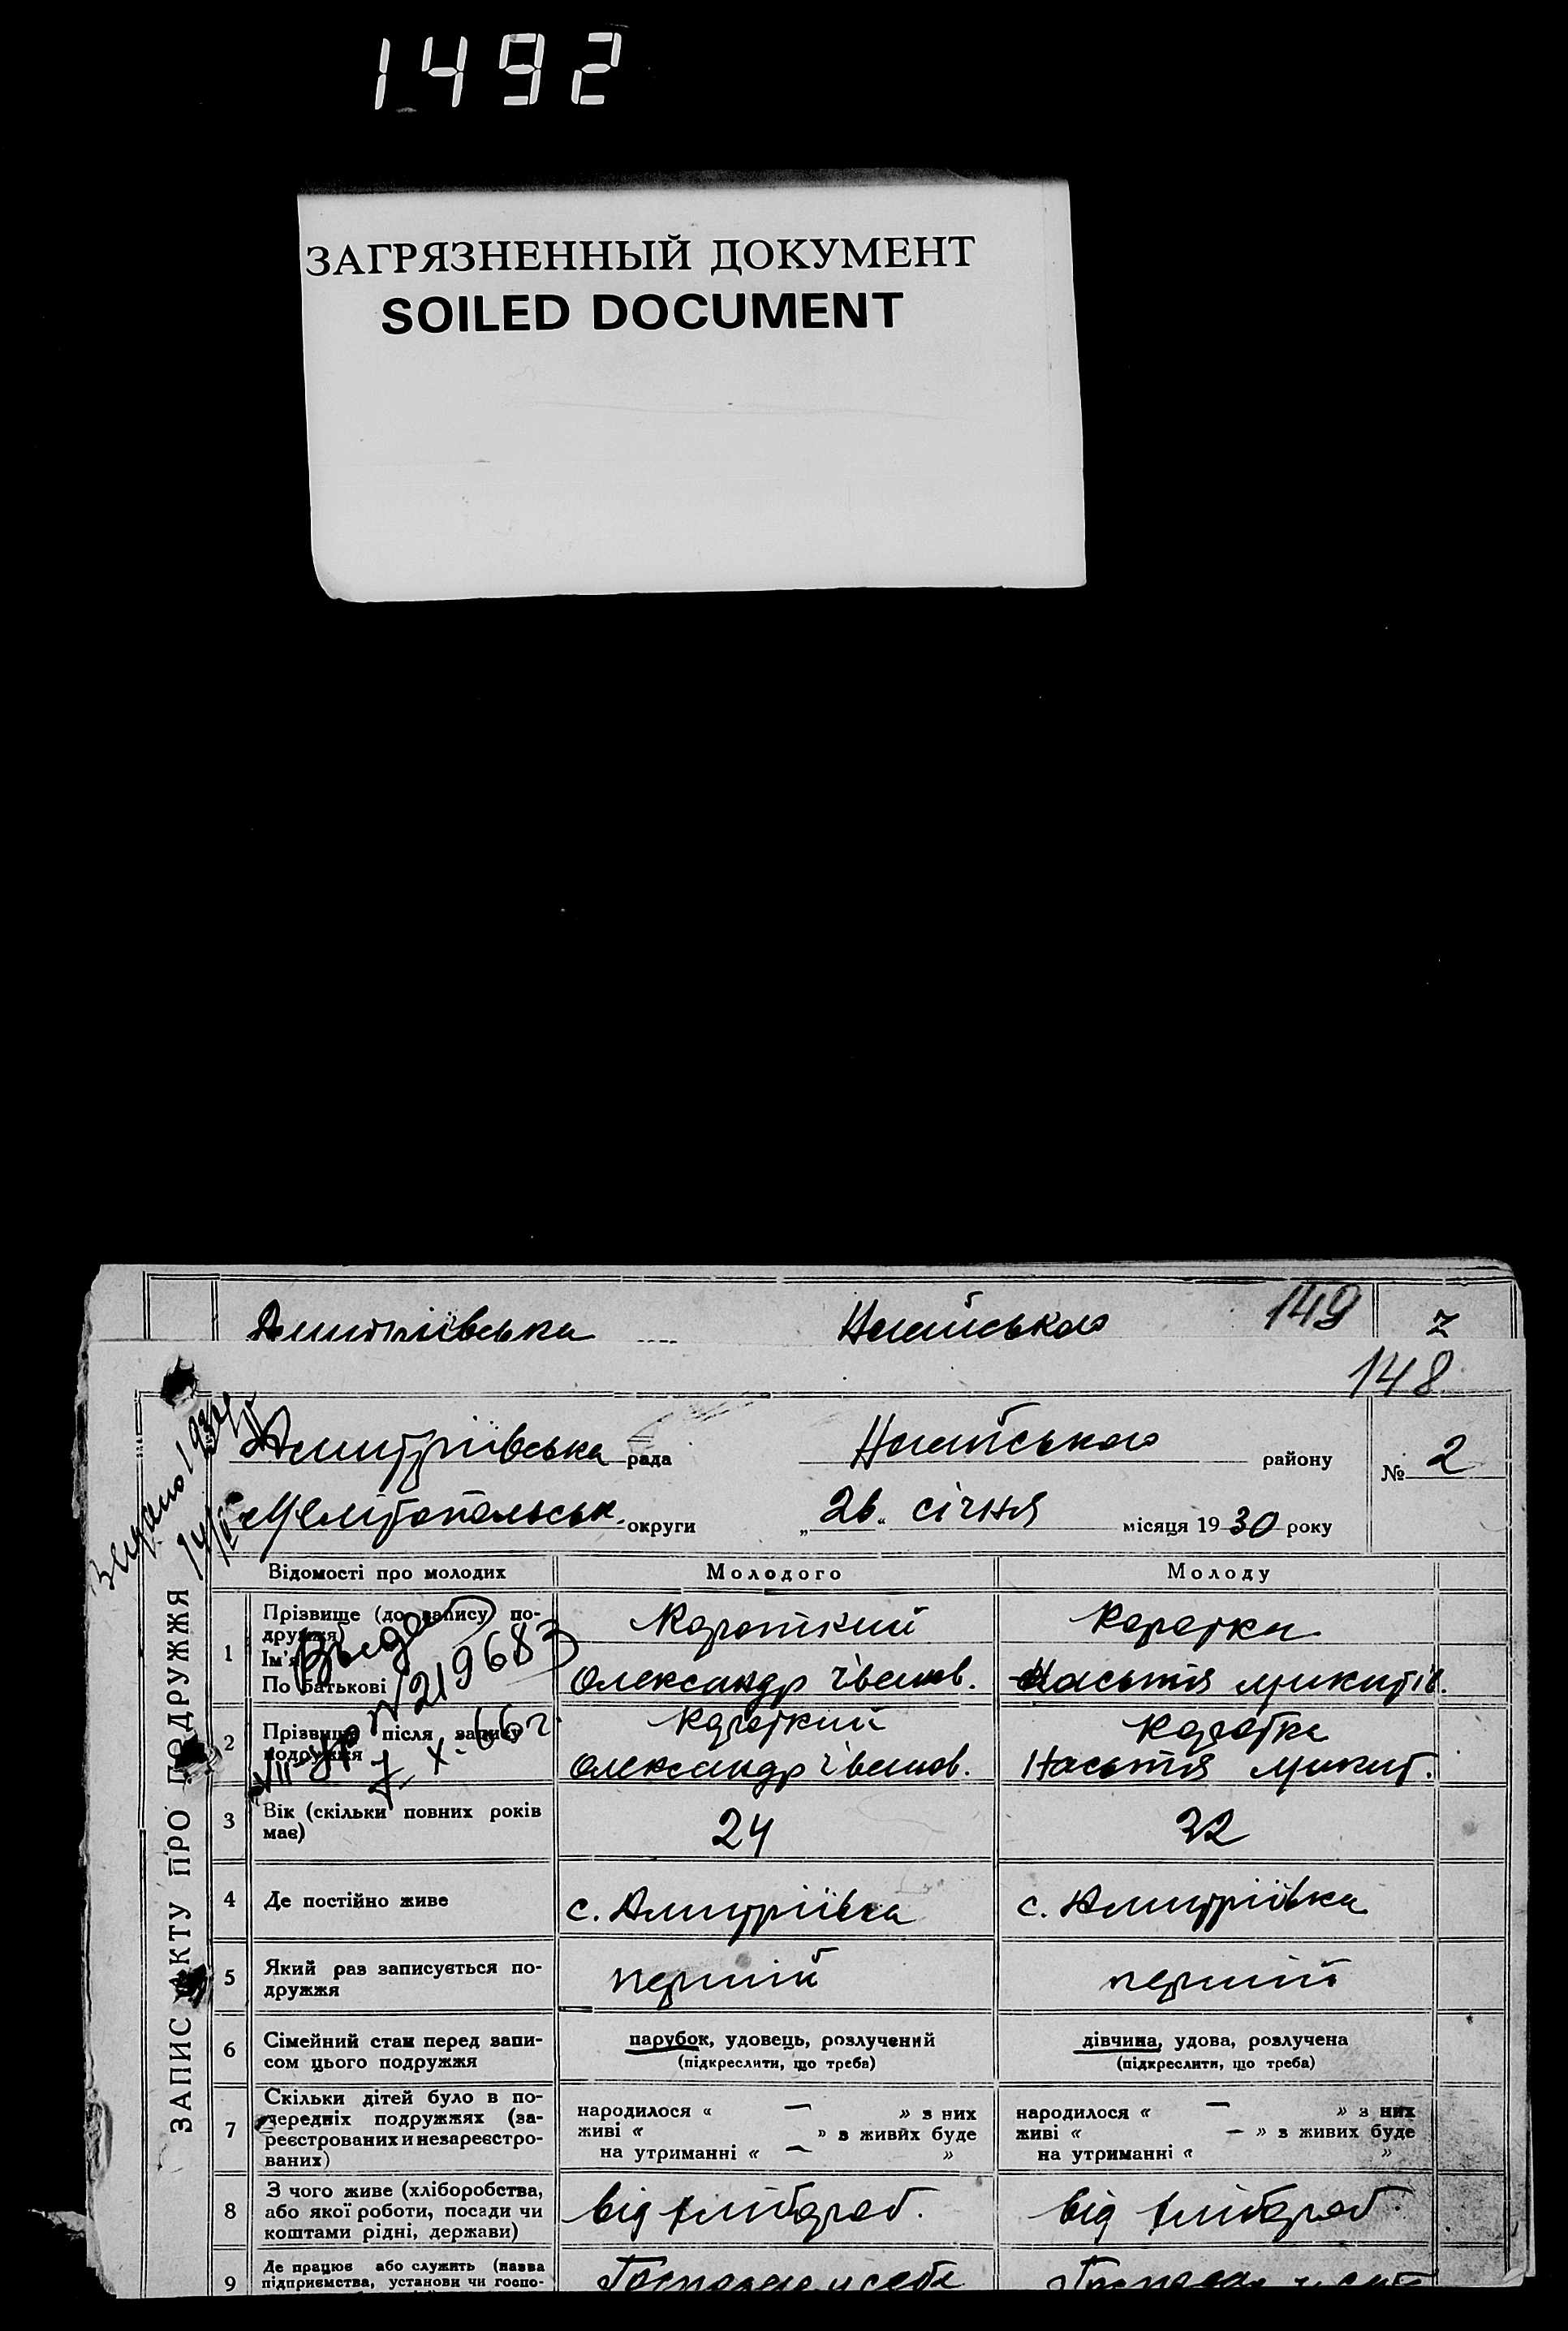 1492
ЗАГРЯЗНЕННЫЙ ДОКУМЕНТ
SOILED DOCUMENT
149
2
148
Дмитріївська рада
району
№ 2
округи „26„ січня місяця 1930 року
ЗАПИС АКТУ ПРО ПОДРУЖЖЯ
Відомості про молодих Молодого Молоду
1 Прізвище (до запису подружжя)
Ім'я
По батькові
Короткий
Олександр Іванов.
Коротка
Настя Микитів.
Выдано
№219683
7 X-66 г.
2 Прізвище після запису
подружжя
Короткий
Олександр Іванов.
Коротка
Настя Микит.
3 Вік (скільки повних років
має)
24
22
4 Де постійно живе с. Дмитріївка с. Дмитріївка
5 Який раз записується по-
дружжя
перший перший
6 Сімейний стан перед запи-
сом цього подружжя
парубок, удовець, розлучений
(підкреслити, що треба)
дівчина, удова, розлучена
(підкреслити, що треба)
7 Скільки дітей було в по-
передніх подружжях (за-
реєстрованих и незареєстро-
ваних)
народилося « — » з них
живі « » з живих буде
на утриманні « — »
народилося « — » з них
живі « — » з живих буде
на утриманні « »
8 З чого живе (хліборобства,
або якої роботи, посади чи
коштами рідні, держави)
від хлібороб.
від хлібороб.
9 Де працює або служить (назва
підприємства, установи чи госпо-